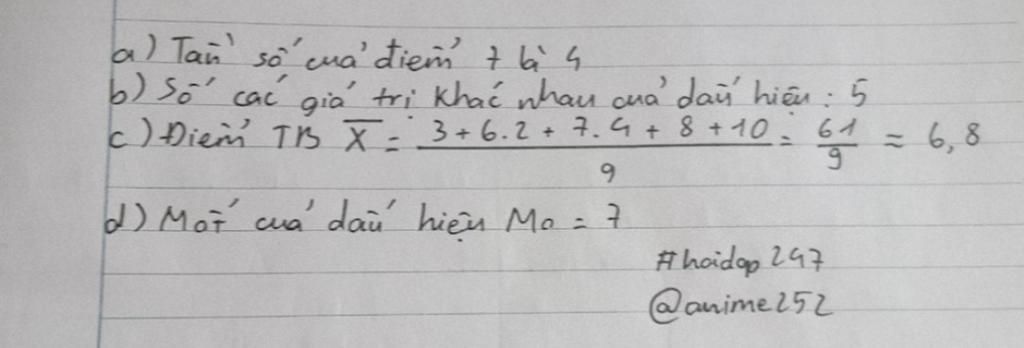 a) Tần số của điểm 7 là 4
b) Số các giá trị khác nhau của dấu hiệu: 5
c) Điểm TB X̄ = (3 + 6.2 + 7.4 + 8 + 10)/9 = 61/9 ≈ 6,8
d) Mốt của dấu hiệu Mo = 7
#hoidap247
@anime252